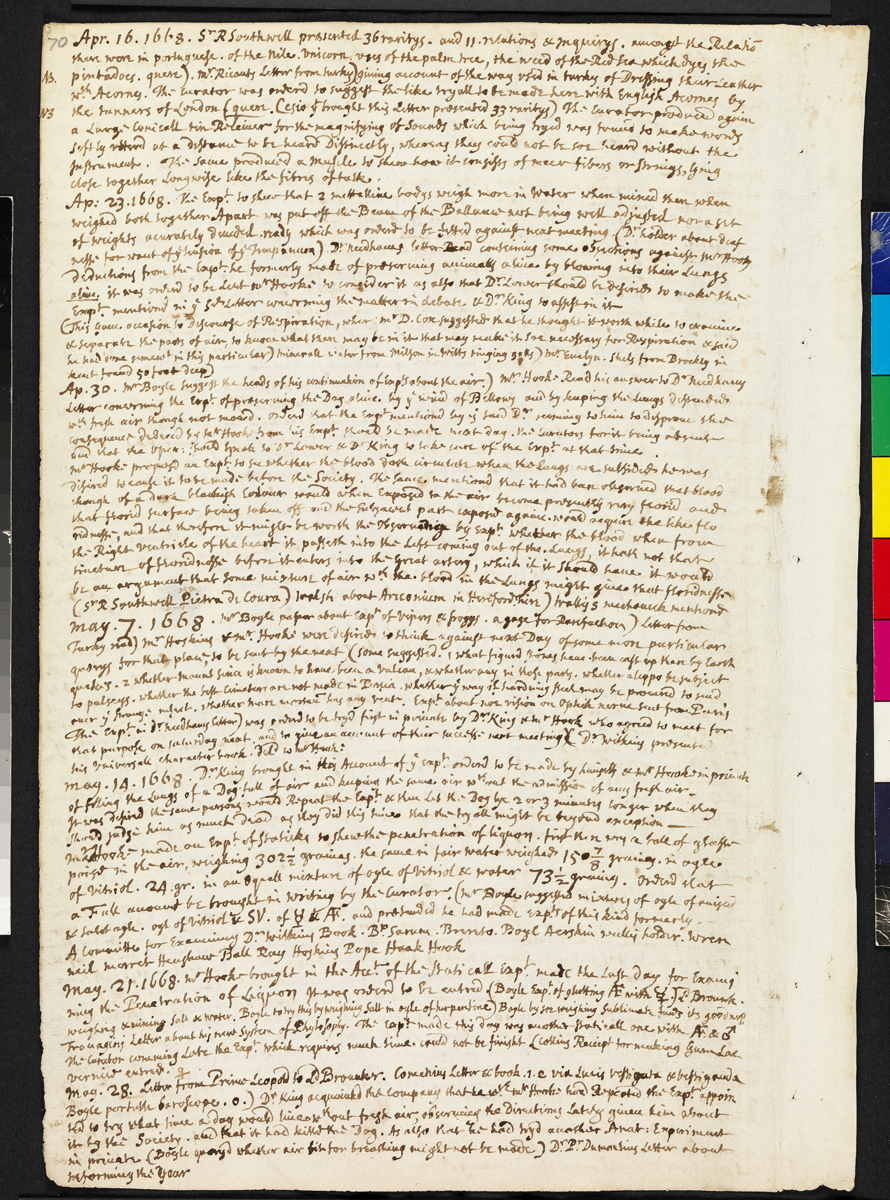 70 Apr. 16. 1668. Sr R Southwell presented 36 raritys. and 11. relations & Inquirys. amongst the Relatiō
there were in portuguese. of the Nile. Unicorn. uses of the palm tree, the weed of the Red Sea which dyes the
NB. pintadoes. quere). mr Ricauts Letter from turky) giving account of the way used in turky of Dressing their Leather
wth Acornes. The Curator was orderd to suggest the like tryall to be made here with English Acornes by
NB the tanners of London (quere. brought this Letter presented 33 raritys) The Curator produced again
a Large Conicall tin Receiver for the magnifying of Sounds which being tryd was found to make words
softly uttered at a distance to be heard Distinctly, whereas they could not be soe heard without the
Instrument. The same produced a Muscle to shew how it consists of meer fibers or strings, lying
close together Longwise like the fibres of talk.
Ap. 23. 1668. The Expt to shew that 2 mettalline bodys weigh more in Water when mixed then when
weighed both together Apart was put off the Beame of the Ballance not being well adjusted nor a set
of weights acurately devided ready which was orderd to be fitted against next meeting (Dr holder about deaf
nesse for want of ye tension of ye Timpanum) Dr Needhams Letter Read containing some objections against mr Hooks
Deductions from the Expt he formerly made of preserving animals alive by blowing into their Lungs
alive. it was orderd to be Lent mr Hooke to consider it as also that Dr Lower should be desired to make the
Expt mentiond in ye Sd Letter concerning the matter in debate. & Dr King to assist in it
(This gave occasion to Discourse of Respiration, wher mr D. Cox suggested that he thought it worth while to examine
& separate the parts of air, to know what there may be in it that may make it soe necessary for Respiration & said
he had done somewt in this particular) minerall water from Milton in wilts) mr Evelyn. shels from Brockly in
Kent found 50 foot deep)
Ap. 30. mr Boyle suggest the heads of his continuation of Expts about the air.) mr Hooke Read his answer to Dr Needhams
Letter concerning the Expt of preserving the Dog alive. by ye wind of Bellows and by keeping the Lungs distended
wth fresh air though not moved. orderd that the Expt mentiond by ye said Dr seeming to him to disprove the
consequence deduced by mr Hooke from his Expt should be made next day. the Curators for it being absent
and that the Oper: should speak to Dr Lower & Dr King to take care of the Expt at that time.
mr Hooke proposd an Expt to see whether the blood doth circulate when the Lungs are subsided he was
desired to cause it to be made before the Society. The same mentiond that it had been observed that blood
though of a dark blackish Colour would when Exposed to the air become presently very florid and
that florid surface being taken off and the subjacent part exposed againe. would acquire the like flo
ridnesse, and that therefore it might be worth the observing by Expt. whether the blood when from
the Right Ventricle of the heart it passeth into the Left coming out of the Lungs, it hath not that
tincture of floridnesse before it enters into the Great artery, which if it should have it would
be an argument that some mixture of air wth the blood in the Lungs might give that floridnesse
(Sr R Southwell Pietra de Coura) welsh about Ariconium in Herefordshire) wallis mechanick mentiond
may. 7. 1668. mr Boyle paper about Expt of Vipers & froggs. a gage for Rarifaction) Letter from
Turky read) mr Hoskins & mr Hooke were desired to think against next Day of some more particular
querys for that place, to be sent by the next (some suggested. 1 what figurd stones have been cast up there by Earth
quakes. 2 whether mount Sinai is known to have been a vulcan, & whether any in those parts. whether aleppo be subject
to pulseys. whether the best Cimeters are not made in Persia. whether ye way of hardning steel may be procured to send
over ye strange. whether hare mortem has any vent. Expt about noe vision on Optick nerve sent from Paris
The Expt in Dr needhams letter) was orderd to be tryd first in private by Dr King & mr Hook who agreed to meet for
that purpose on saturday next. and to give an account of their successe next meeting (Dr Wilkins presented
his Universall character book.
may. 14. 1668. Dr King brought in this Account of ye Expt orderd to be made by himself & mr Hooke in private
of filling the Lungs of a Dog full of air and keeping the same air wthout the admission of any fresh air.
It was desired the same persons would Repeat the Expt & then Let the Dog lye 2 or 3 minuts longer when they
should judge him as much dead as they did this time that the tryall might be beyond exception.
mr Hooke made an Expt of Staticks to shew the penetration of liquors. first then wey a ball of glasse
poised in the air, weighing 302½ graines. the same in fair water weighed 150 7/8 graines. in oyle
of Vitriol. 24. gr. in an equall mixture of oyle of Vitriol & water 73½ graines. Orderd that
a Full account be brought in writing by the Curator. (mr Boyle suggested mixtures of oyle of anised
& salet oyle. oyl of Vitriol & SV. and pretended he had made Expts of this kind formerly.
A Committe for Examining Dr Wilkins Book. Bp. Sarum. Brereto. Boyl Aerskin wallis holder. Wren
neil merret Henshaw Ball Ray Hoskins Pope Haak Hook
may. 21. 1668. mr Hooke brought in the Acct of the Staticall Expt made the Last day for Exami
ning the Penetration of Liquors It was orderd to be entred (Boyle Expt of glutting
weighing & mixing salt & water. Boyle to try this by weighing Salt in oyle of turpentine) Boyle by soe weighing Sublimate finds its goodness
Letter about his new System of Phylosophy. The Expt made this day was another Staticall one with
the Curator comming Late the Expt which requires much time. could not be finisht (Collins Receipt for making Gum Lac
vernice entred.
may. 28. Letter from Prince Leopold to Ld Brounker. Comenius Letter & book. 1. e via Lucis vestigata & vestiganda
Boyle portable baroscope. 0.) Dr King acquainted the Company that he wth mr Hooke had Repeated the Expt appoin
ted to try what time a dog would live wthout fresh air, observing the Directions Lately given him about
it by the Society. and that it had killed the Dog. As also that he had tryd another Anat: Experiment
in private (Boyle queryd whether air fitt for breathing might not be made) Dr Pr Dumoulins Letter about
reforming the Year